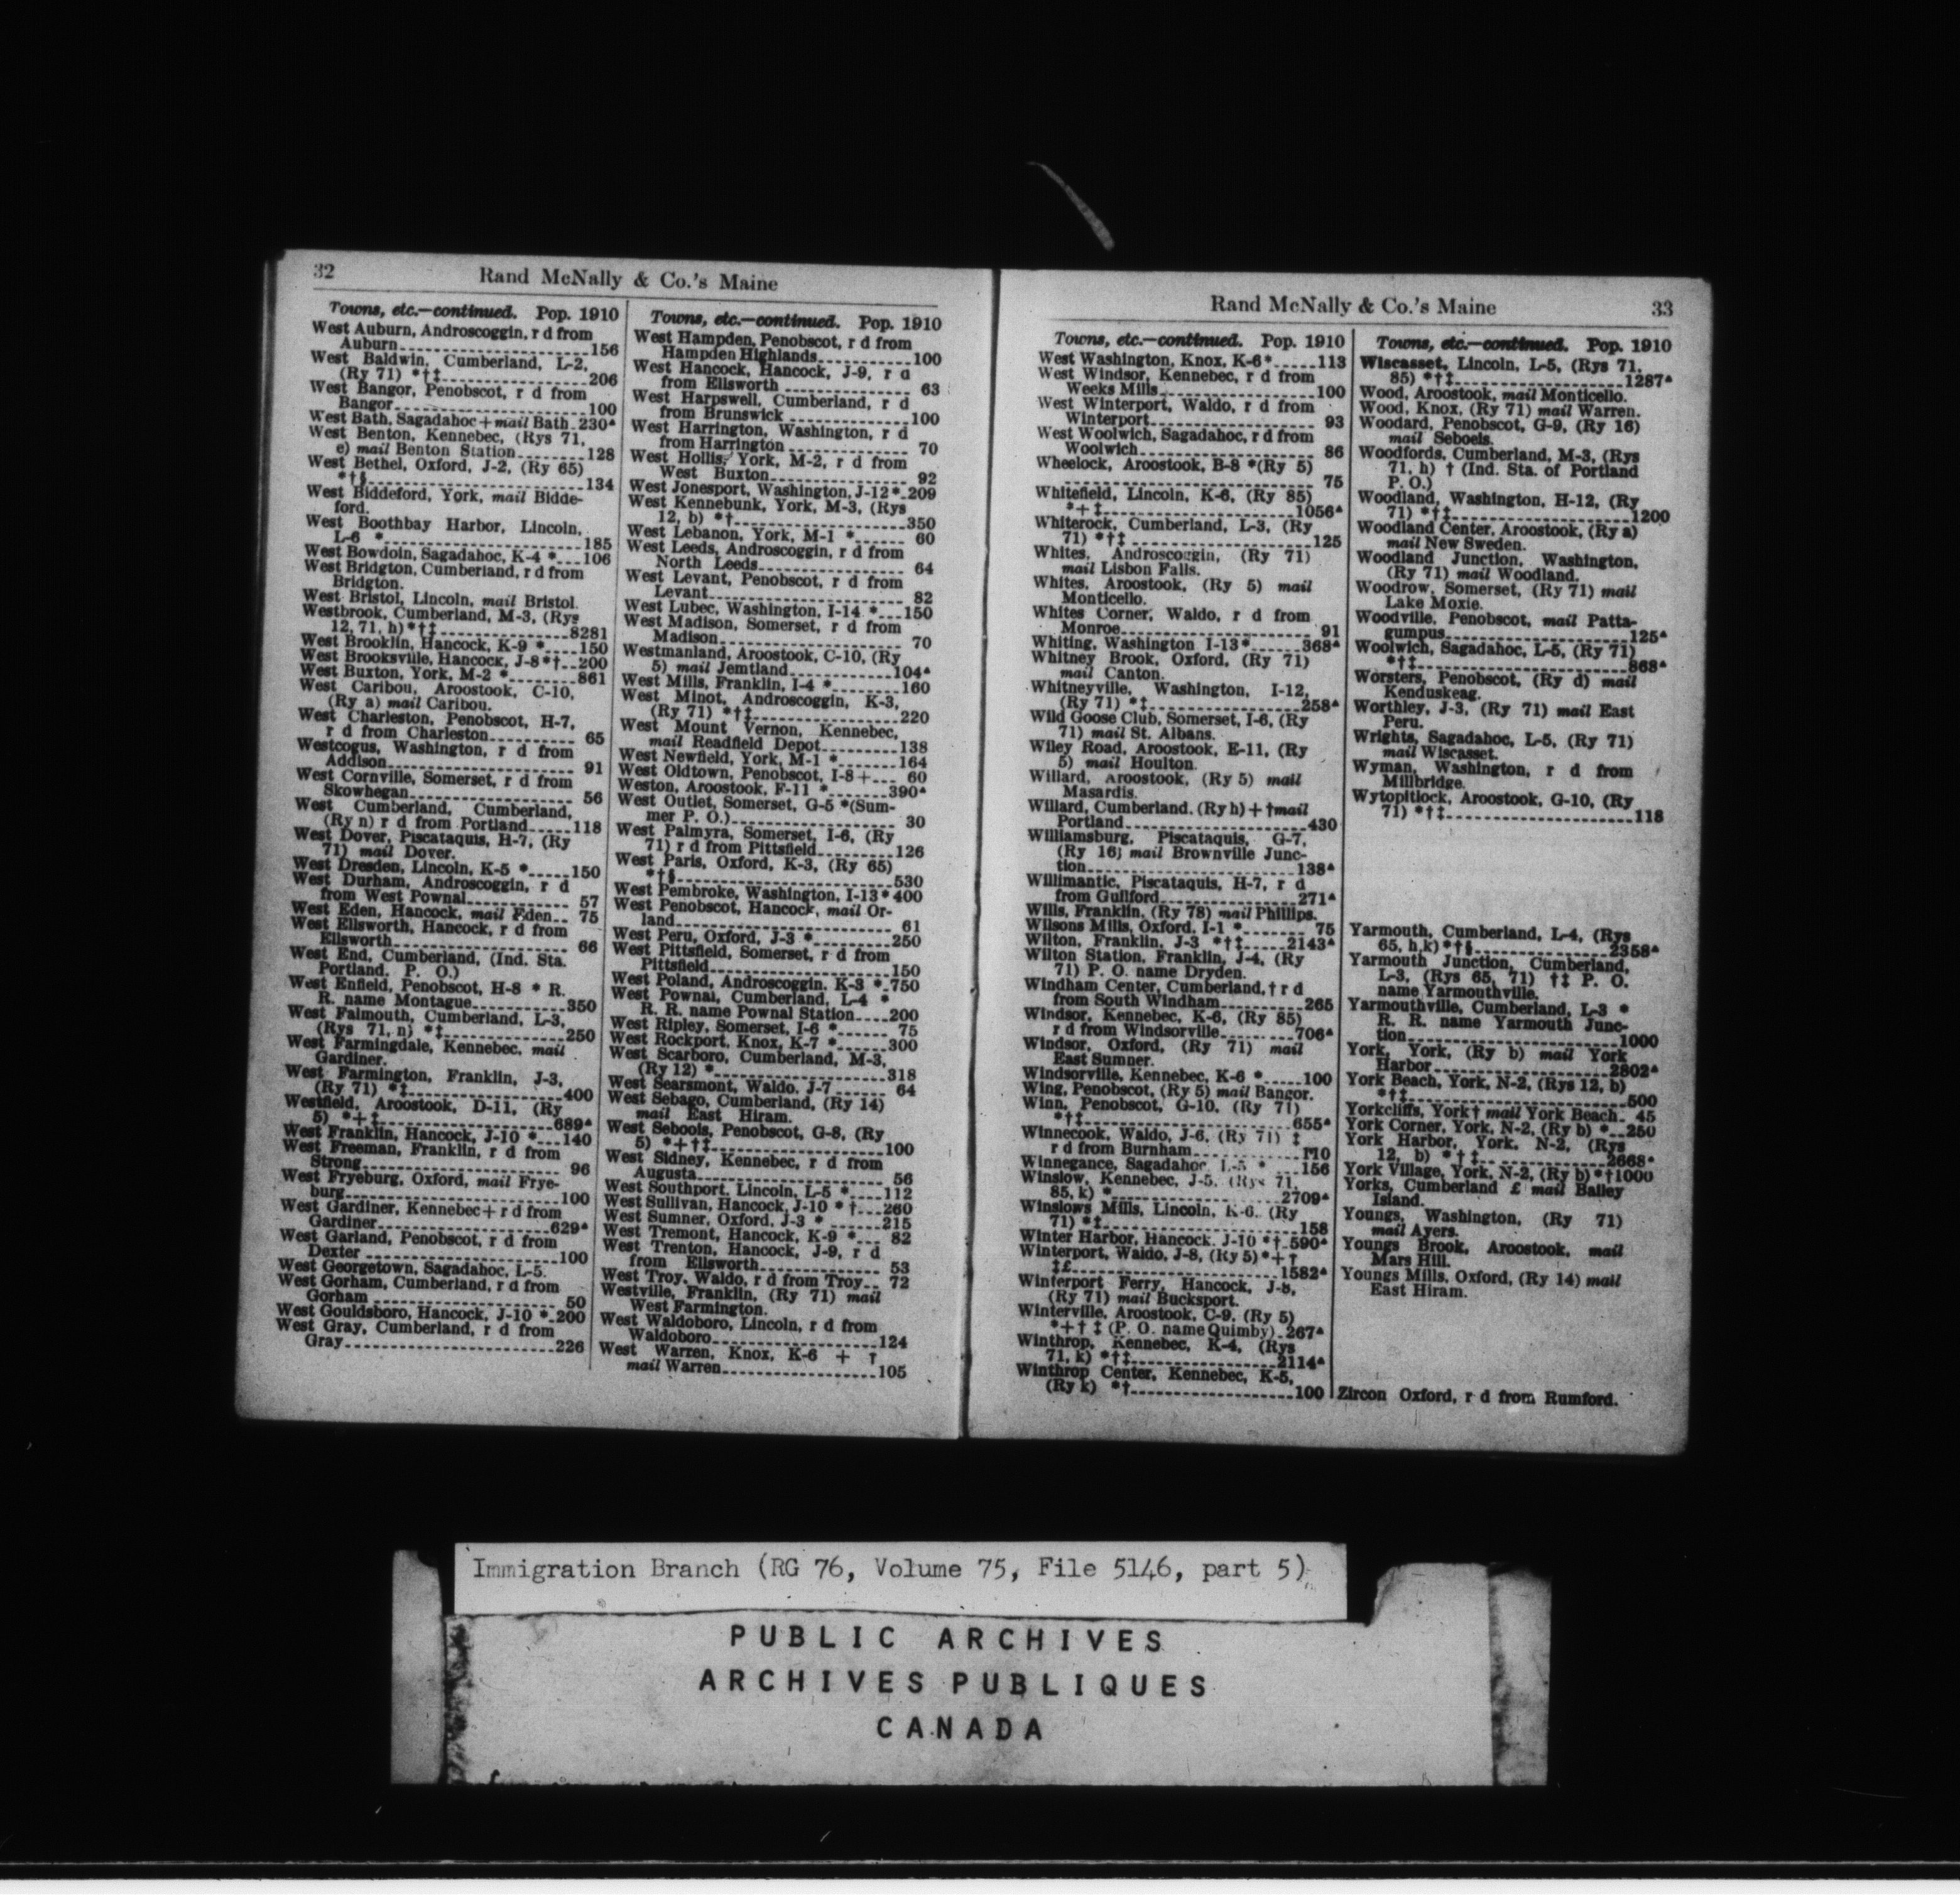 32
Rand McNally & Co.'s Maine
Towns, etc.—continued. Pop. 1910
West Auburn, Androscoggin, r d from
Auburn 156
West Baldwin, Cumberland, L-2,
(Ry 71) *†‡ 206
West Bangor, Penobscot, r d from
Bangor 100
West Bath, Sagadahoc+mail Bath 230▲
West Benton, Kennebec, (Rys 71,
e) mail Benton Station 128
West Bethel, Oxford, J-2, (Ry 65)
*†§ 134
West Biddeford, York, mail Bidde-
ford.
West Boothbay Harbor, Lincoln,
L-6 * 185
West Bowdoin, Sagadahoc, K-4 * 106
West Bridgton, Cumberland, r d from
Bridgton.
West Bristol, Lincoln, mail Bristol.
Westbrook, Cumberland, M-3, (Rys
12, 71, h)*†‡ 8281
West Brooklin, Hancock, K-9 * 150
West Brooksville, Hancock, J-8*† 200
West Buxton, York, M-2 * 861
West Caribou, Aroostook, C-10,
(Ry a) mail Caribou.
West Charleston, Penobscot, H-7,
r d from Charleston 65
Westcogus, Washington, r d from
Addison 91
West Cornville, Somerset, r d from
Skowhegan 56
West Cumberland, Cumberland,
(Ry n) r d from Portland 118
West Dover, Piscataquis, H-7, (Ry
71) mail Dover.
West Dresden, Lincoln, K-5 * 150
West Durham, Androscoggin, r d
from West Pownal 57
West Eden, Hancock, mail Eden 75
West Ellsworth, Hancock, r d from
Ellsworth 66
West End, Cumberland, (Ind. Sta.
Portland. P. O.)
West Enfield, Penobscot, H-8 * R.
R. name Montague 350
West Falmouth, Cumberland, L-3,
(Rys 71, n) *‡ 250
West Farmingdale, Kennebec, mail
Gardiner.
West Farmington, Franklin, J-3,
(Ry 71) *‡ 400
Westfield, Aroostook, D-11, (Ry
5) *+‡ 689▲
West Franklin, Hancock, J-10 * 140
West Freeman, Franklin, r d from
Strong 96
West Fryeburg, Oxford, mail Frye-
burg 100
West Gardiner, Kennebec+r d from
Gardiner 629▲
West Garland, Penobscot, r d from
Dexter 100
West Georgetown, Sagadahoc, L-5.
West Gorham, Cumberland, r d from
Gorham 50
West Gouldsboro, Hancock, J-10 * 200
West Gray, Cumberland, r d from
Gray 226
Towns, etc.—continued. Pop. 1910
West Hampden, Penobscot, r d from
Hampden Highlands 100
West Hancock, Hancock, J-9, r d
from Ellsworth 63
West Harpswell, Cumberland, r d
from Brunswick 100
West Harrington, Washington, r d
from Harrington 70
West Hollis, York, M-2, r d from
West Buxton 92
West Jonesport, Washington, J-12* 209
West Kennebunk, York, M-3, (Rys
12, b) *† 350
West Lebanon, York, M-1 * 60
West Leeds, Androscoggin, r d from
North Leeds 64
West Levant, Penobscot, r d from
Levant 82
West Lubec, Washington, I-14 * 150
West Madison, Somerset, r d from
Madison 70
Westmanland, Aroostook, C-10, (Ry
5) mail Jemtland 104▲
West Mills, Franklin, I-4 * 160
West Minot, Androscoggin, K-3,
(Ry 71) *†‡ 220
West Mount Vernon, Kennebec,
mail Readfield Depot 138
West Newfield, York, M-1 * 164
West Oldtown, Penobscot, I-8+ 60
Weston, Aroostook, F-11 * 390▲
West Outlet, Somerset, G-5 *(Sum-
mer P. O.) 30
West Palmyra, Somerset, I-6, (Ry
71) r d from Pittsfield 126
West Paris, Oxford, K-3, (Ry 65)
*†§ 530
West Pembroke, Washington, I-13*400
West Penobscot, Hancock, mail Or-
land 61
West Peru, Oxford, J-3 * 250
West Pittsfield, Somerset, r d from
Pittsfield 150
West Poland, Androscoggin, K-3 * 750
West Pownal, Cumberland, L-4 *
R. R. name Pownal Station 200
West Ripley, Somerset, I-6 * 75
West Rockport, Knox, K-7 * 300
West Scarboro, Cumberland, M-3,
(Ry 12) * 318
West Searsmont, Waldo, J-7 64
West Sebago, Cumberland, (Ry 14)
mail East Hiram.
West Seboois, Penobscot, G-8, (Ry
5) *+†‡ 100
West Sidney, Kennebec, r d from
Augusta 56
West Southport, Lincoln, L-5 * 112
West Sullivan, Hancock, J-10 *† 260
West Sumner, Oxford, J-3 * 215
West Tremont, Hancock, K-9 * 82
West Trenton, Hancock, J-9, r d
from Ellsworth 53
West Troy, Waldo, r d from Troy 72
Westville, Franklin, (Ry 71) mail
West Farmington.
West Waldoboro, Lincoln, r d from
Waldoboro 124
West Warren, Knox, K-6 + †
mail Warren 105
Rand McNally & Co.'s Maine
33
Towns, etc.—continued. Pop. 1910
West Washington, Knox, K-6* 113
West Windsor, Kennebec, r d from
Weeks Mills 100
West Winterport, Waldo, r d from
Winterport 93
West Woolwich, Sagadahoc, r d from
Woolwich 86
Wheelock, Aroostook, B-8 *(Ry 5)
75
Whitefield, Lincoln, K-6, (Ry 85)
*+‡ 1056▲
Whiterock, Cumberland, L-3, (Ry
71) *†‡ 125
Whites, Androscoggin, (Ry 71)
mail Lisbon Falls.
Whites, Aroostook, (Ry 5) mail
Monticello.
Whites Corner, Waldo, r d from
Monroe 91
Whiting, Washington I-13* 368▲
Whitney Brook, Oxford, (Ry 71)
mail Canton.
Whitneyville, Washington, I-12,
(Ry 71) *‡ 258▲
Wild Goose Club, Somerset, I-6, (Ry
71) mail St. Albans.
Wiley Road, Aroostook, E-11, (Ry
5) mail Houlton.
Willard, Aroostook, (Ry 5) mail
Masardis.
Willard, Cumberland, (Ry h)+†mail
Portland 430
Williamsburg, Piscataquis, G-7,
(Ry 16) mail Brownville Junc-
tion 138▲
Willimantic, Piscataquis, H-7, r d
from Guilford 271▲
Wills, Franklin, (Ry 78) mail Phillips.
Wilsons Mills, Oxford, I-1 * 75
Wilton, Franklin, J-3 *†‡ 2143▲
Wilton Station, Franklin, J-4, (Ry
71) P. O. name Dryden.
Windham Center, Cumberland,† r d
from South Windham 265
Windsor, Kennebec, K-6, (Ry 85)
r d from Windsorville 706▲
Windsor, Oxford, (Ry 71) mail
East Sumner.
Windsorville, Kennebec, K-6 * 100
Wing, Penobscot, (Ry 5) mail Bangor.
Winn, Penobscot, G-10, (Ry 71)
*†‡ 655▲
Winnecook, Waldo, J-6, (Ry 71) ‡
r d from Burnham
Winnegance, Sagadahoc, L-5 * 156
Winslow, Kennebec, J-5, (Rys 71,
85, k) * 2709▲
Winslows Mills, Lincoln, K-6, (Ry
71) *‡ 158
Winter Harbor, Hancock, J-10 *† 590▲
Winterport, Waldo, J-8, (Ry 5)*+†
‡£ 1582▲
Winterport Ferry, Hancock, J-8,
(Ry 71) mail Bucksport.
Winterville, Aroostook, C-9, (Ry 5)
*+† ‡ (P. O. name Quimby) 267▲
Winthrop, Kennebec, K-4, (Rys
71, k) *†‡ 2114▲
Winthrop Center, Kennebec, K-5,
(Ry k) *† 100
Towns, etc.—continued. Pop. 1910
Wiscasset, Lincoln, L-5, (Rys 71,
85) *†‡ 1287▲
Wood, Aroostook, mail Monticello.
Wood, Knox, (Ry 71) mail Warren.
Woodard, Penobscot, G-9, (Ry 16)
mail Seboeis.
Woodfords, Cumberland, M-3, (Rys
71, h) † (Ind. Sta. of Portland
P. O.)
Woodland, Washington, H-12, (Ry
71) *†‡ 1200
Woodland Center, Aroostook, (Ry a)
mail New Sweden.
Woodland Junction, Washington,
(Ry 71) mail Woodland.
Woodrow, Somerset, (Ry 71) mail
Lake Moxie.
Woodville, Penobscot, mail Patta-
gumpus 125▲
Woolwich, Sagadahoc, L-5, (Ry 71)
*†‡ 868▲
Worsters, Penobscot, (Ry d) mail
Kenduskeag.
Worthley, J-3, (Ry 71) mail East
Peru.
Wrights, Sagadahoc, L-5, (Ry 71)
mail Wiscasset.
Wyman, Washington, r d from
Millbridge.
Wytopitlock, Aroostook, G-10, (Ry
71) *†‡ 118
Yarmouth, Cumberland, L-4, (Rys
65, h,k)*†§ 2358▲
Yarmouth Junction, Cumberland,
L-3, (Rys 65, 71) †‡ P. O.
name Yarmouthville.
Yarmouthville, Cumberland, L-3 *
R. R. name Yarmouth Junc-
tion 1000
York, York, (Ry b) mail York
Harbor 2802▲
York Beach, York, N-2, (Rys 12, b)
*†‡ 500
Yorkcliffs, York† mail York Beach 45
York Corner, York, N-2, (Ry b) * 250
York Harbor, York, N-2, (Rys
12, b) *†‡ 2668▲
York Village, York, N-2, (Ry b)*†1000
Yorks, Cumberland £ mail Bailey
Island.
Youngs, Washington, (Ry 71)
mail Ayers.
Youngs Brook, Aroostook, mail
Mars Hill.
Youngs Mills, Oxford, (Ry 14) mail
East Hiram.
Zircon Oxford, r d from Rumford.
Immigration Branch (RG 76, Volume 75, File 5146, part 5)
PUBLIC ARCHIVES
ARCHIVES PUBLIQUES
CANADA